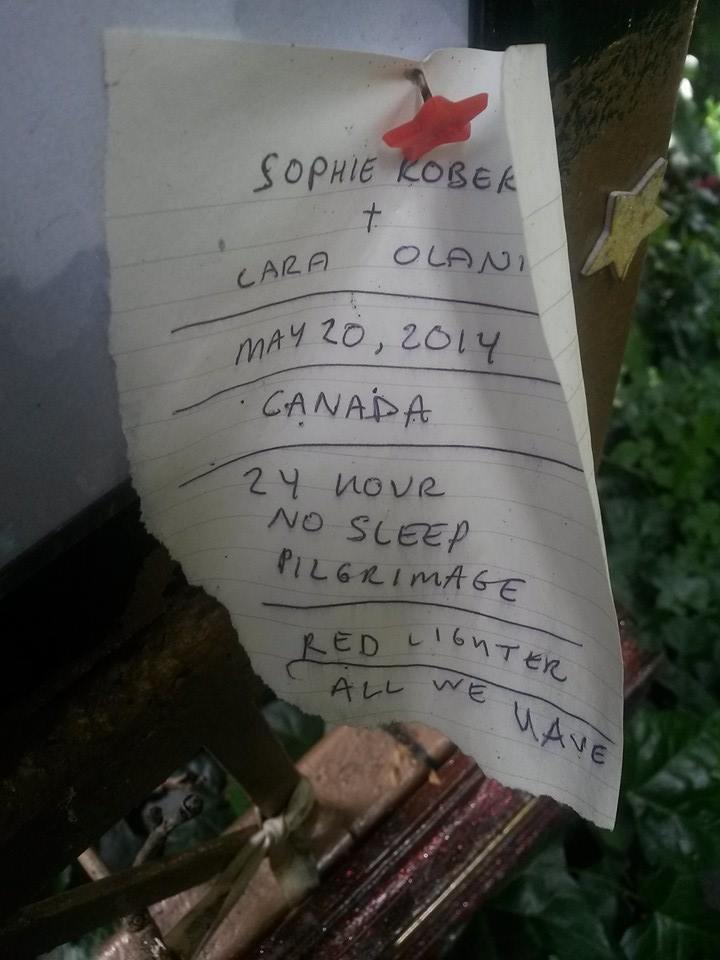 SOPHIE KOBER
+
CARA OLANI
MAY 20, 2014
CANADA
24 HOUR
NO SLEEP
PILGRIMAGE
RED LIGHTER
ALL WE HAVE